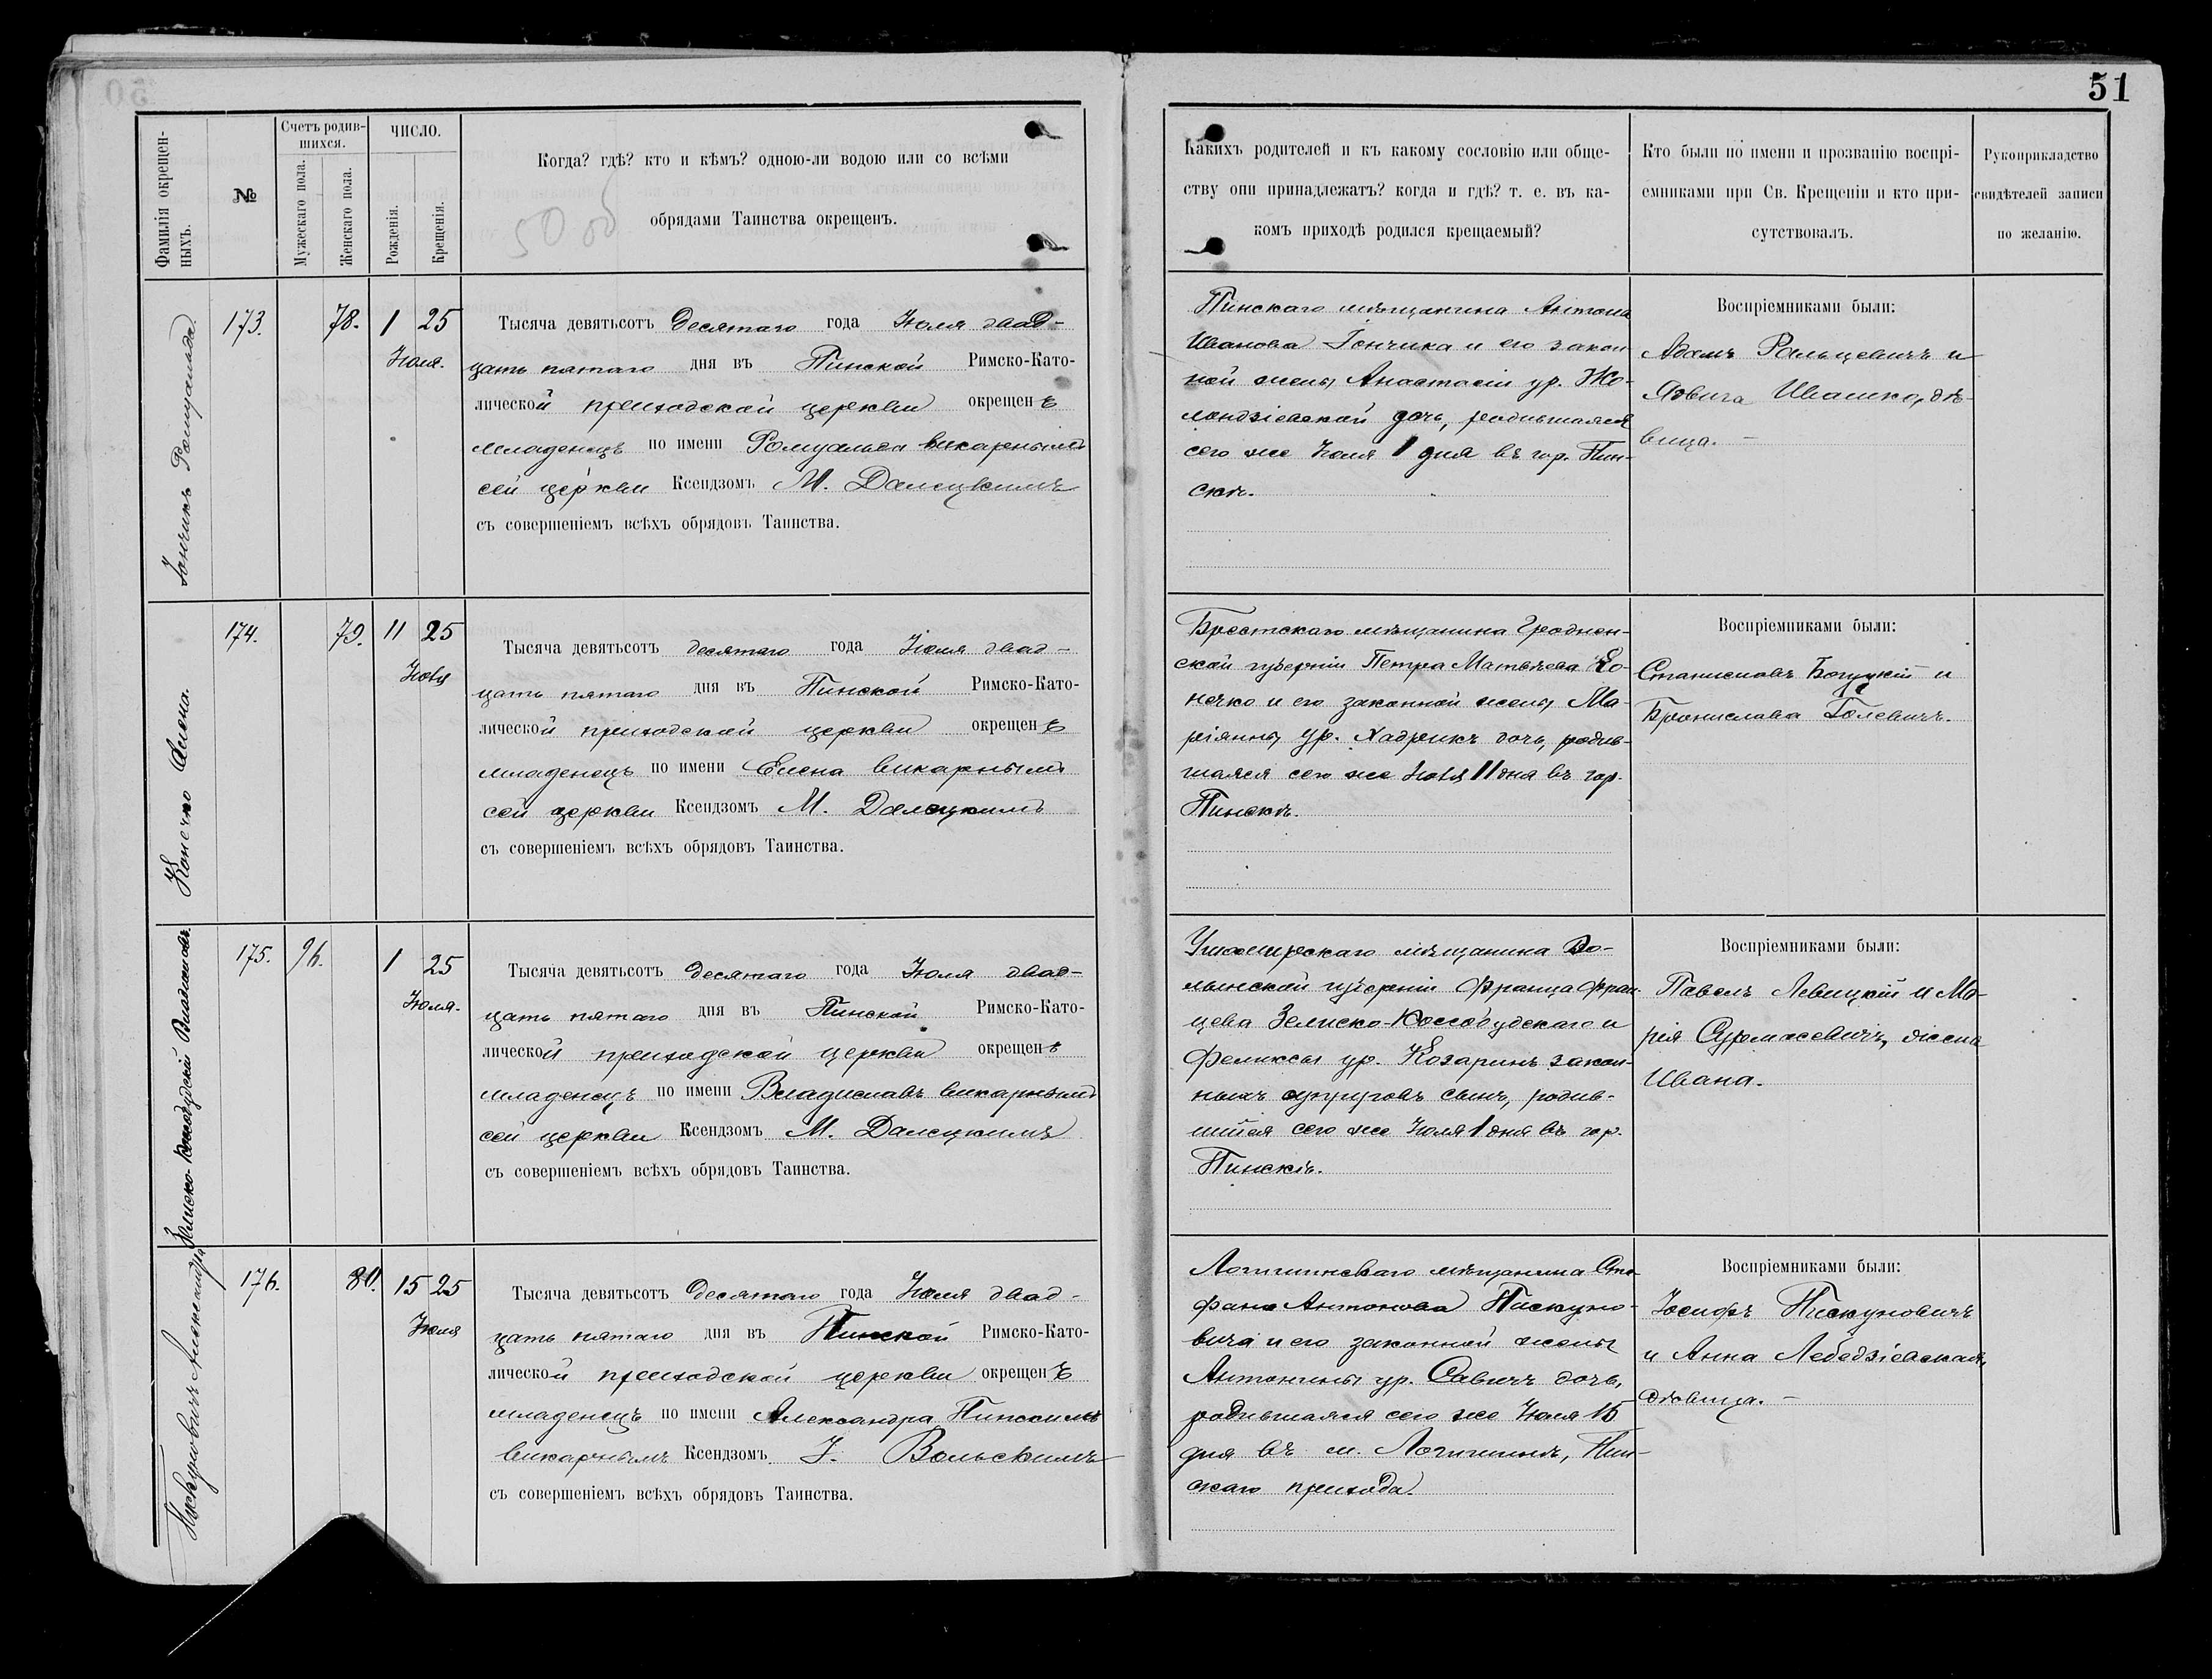 51
Фамилія окрещен-
ныхъ.
№
Счетъ родив-
шихся.
Мужескаго пола.
Женскаго пола.
ЧИСЛО.
Рожденія.
Крещенія.
Когда? гдѣ? кто и кѣмъ? одною-ли водою или со всѣми
обрядами Таинства окрещенъ.
50 об
Какихъ родителей и къ какому сословію или обще-
ству они принадлежатъ? когда и гдѣ? т. е. въ ка-
комъ приходѣ родился крещаемый?
Кто были по имени и прозванію воспрі-
емниками при Св. Крещеніи и кто при-
сутствовалъ.
Рукоприкладство
свидѣтелей записи
по желанію.
173.
78.
1 25
Іюля.
Тысяча девятьсотъ десятаго года Іюля двад-
цать пятаго дня въ Пинской Римско-Като-
лической приходской церкви окрещенъ
младенецъ по имени Ромуальда викарнымъ
сей церкви Ксендзомъ М. Далецкимъ
съ совершеніемъ всѣхъ обрядовъ Таинства.
Пинскаго мѣщанина Антона
Иванова Гончика и его закон
ной жены Анастасіи ур. Жо-
лондзіевской дочь, родившаяся
сего же Іюля 1 дня въ гор. Пин-
скѣ.
Воспріемниками были:
Адамъ Ральцевичъ и
Ядвига Ивашко, дѣ-
вица. -
Конечко Елена.
174.
79.
11 25
Іюля
Тысяча девятьсотъ десятаго года Іюля двад-
цать пятаго дня въ Пинской Римско-Като-
лической приходской церкви окрещенъ
младенецъ по имени Елена викарнымъ
сей церкви Ксендзомъ М. Далецкимъ
съ совершеніемъ всѣхъ обрядовъ Таинства.
Брестскаго мѣщанина Гроднен-
ской губерніи Петра Матвѣева Ко-
нечко и его законной жены Ма-
ріянны ур. Хадрикъ дочь, родив-
шаяся сего же Іюля 11 дня въ гор.
Пинскѣ.
Воспріемниками были:
Станиславъ Богуцкій и
Бронислава Голевичъ.
175.
96.
1 25
Іюля.
Тысяча девятьсотъ десятаго года Іюля двад-
цать пятаго дня въ Пинской Римско-Като-
лической приходской церкви окрещенъ
младенецъ по имени Владиславъ викарнымъ
сей церкви Ксендзомъ М. Далецкимъ
съ совершеніемъ всѣхъ обрядовъ Таинства.
Ушомирскаго мѣщанина Во-
лынской губерніи Франца Фран-
цева Зелиско-Кособудскаго и
Феликсы ур. Козаринъ закон-
ныхъ супруговъ сынъ, родив-
шійся сего же Іюля 1 дня въ гор.
Пинскѣ.
Воспріемниками были:
Павелъ Левицкій и Ма-
рія Сурмасевичъ, жена
Ивана.
Пискуновичъ Александра
176.
80.
15 25
Іюля
Тысяча девятьсотъ десятаго года Іюля двад-
цать пятаго дня въ Пинской Римско-Като-
лической приходской церкви окрещенъ
младенецъ по имени Александра Пинскимъ
викарнымъ Ксендзомъ І. Вольскимъ
съ совершеніемъ всѣхъ обрядовъ Таинства.
Логишинскаго мѣщанина Сте-
фана Антонова Пискуно-
вича и его законной жены
Антонины ур. Савичъ дочь,
родившаяся сего же Іюля 15
дня въ м. Логишинѣ, Пин-
скаго прихода.
Воспріемниками были:
Іосифъ Пискуновичъ
и Анна Лебедзіевская,
дѣвица. -